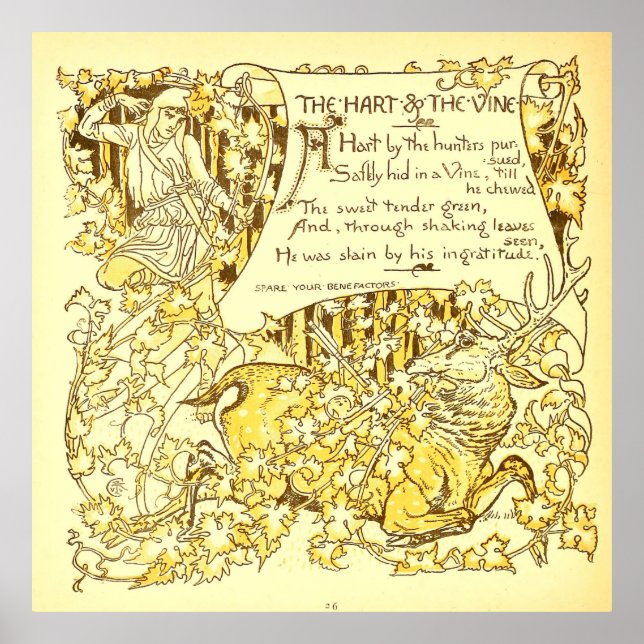 THE·HART·&·THE·VINE·
A Hart by the hunters pur-
sued,
Safely hid in a Vine, 'till
he chewed
The sweet tender green,
And, through shaking leaves
seen,
He was slain by his ingratitude.
SPARE·YOUR·BENEFACTORS·
26